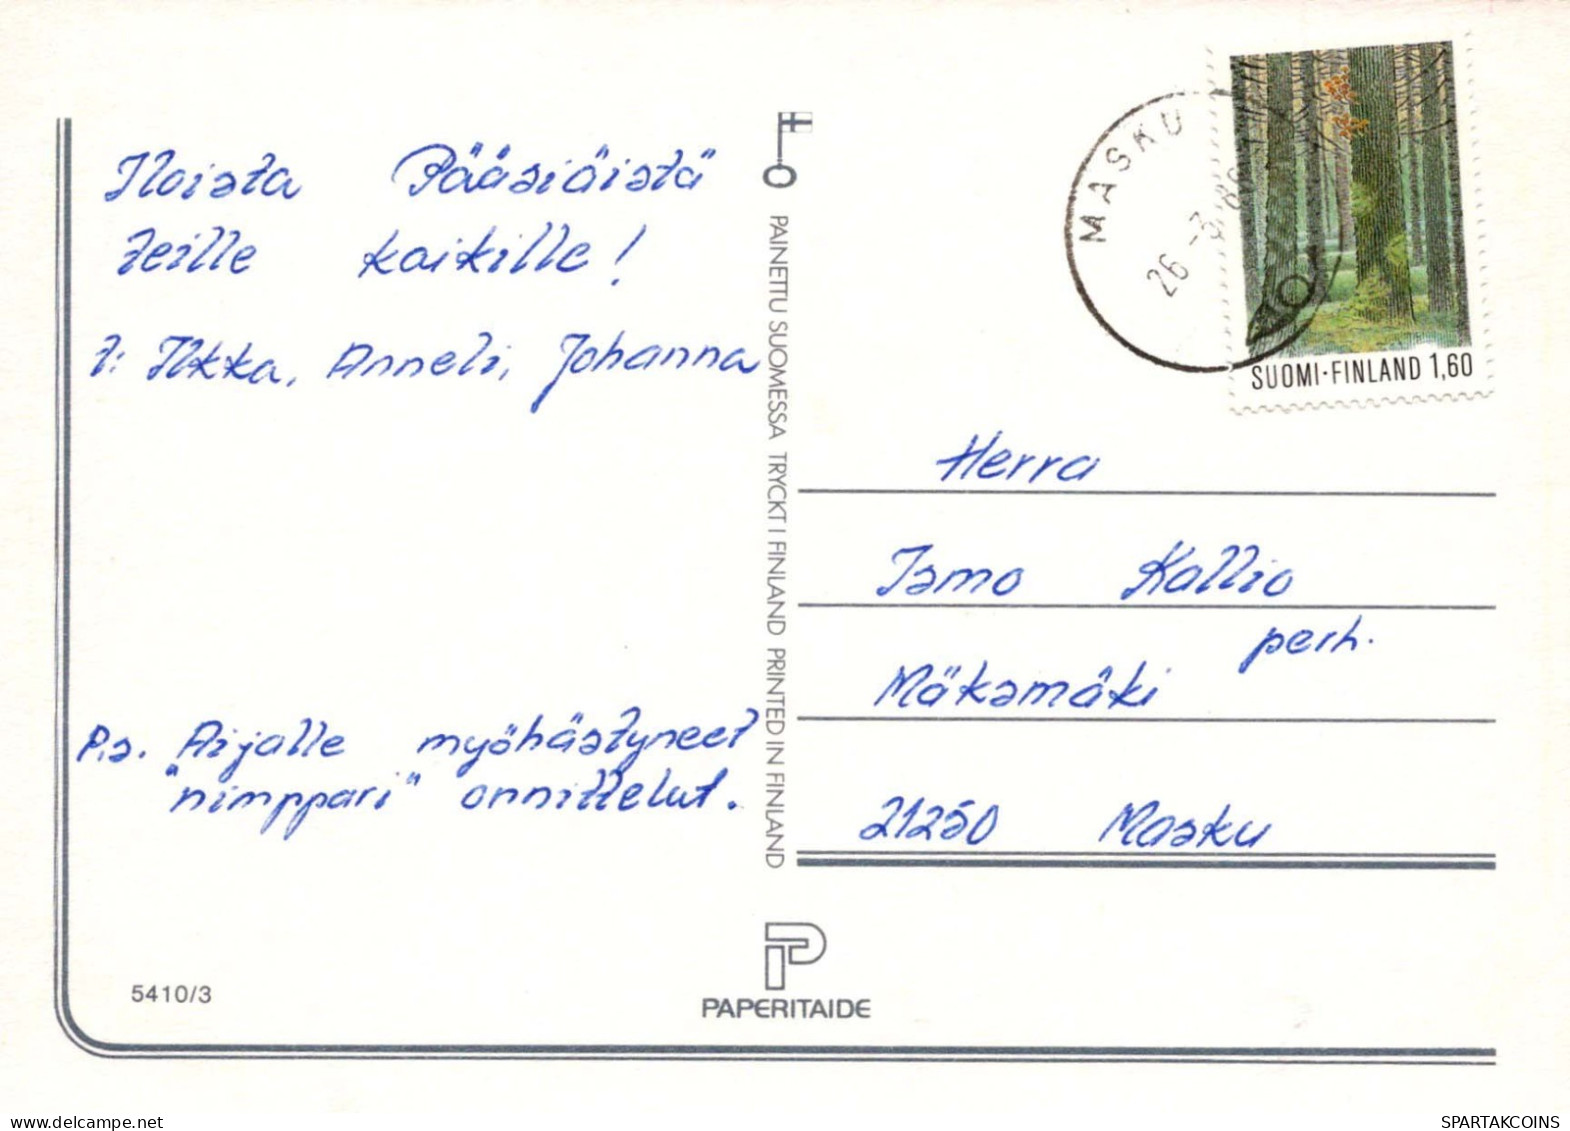 Iloista Pääsiäistä
teille kaikille!
t: Ilkka, Anneli, Johanna
P.s. Aijalle myöhästyneet
"nimppari" onnittelut.
5410/3
PAINETTU SUOMESSA TRYCKT I FINLAND PRINTED IN FINLAND
PAPERITAIDE
MASKU
26 -3 86
SUOMI·FINLAND 1,60
Herra
Ismo Kallio
perh.
Mäksmäki
21250 Masku
SPARTAKCOINS